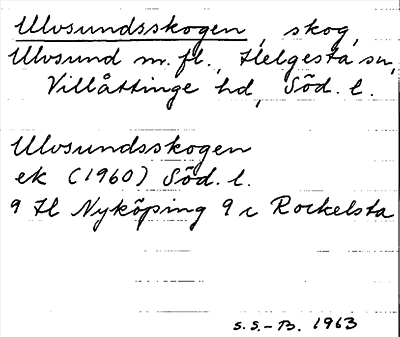 Ulvsundsskogen, skog,
Ulvsund m.fl., Helgesta sn,
Villåttinge hd, Söd. l.
Ulvsundsskogen
ek (1960) Söd. l.
9 H Nyköping 9 c Rockelsta
S.S.-B. 1963